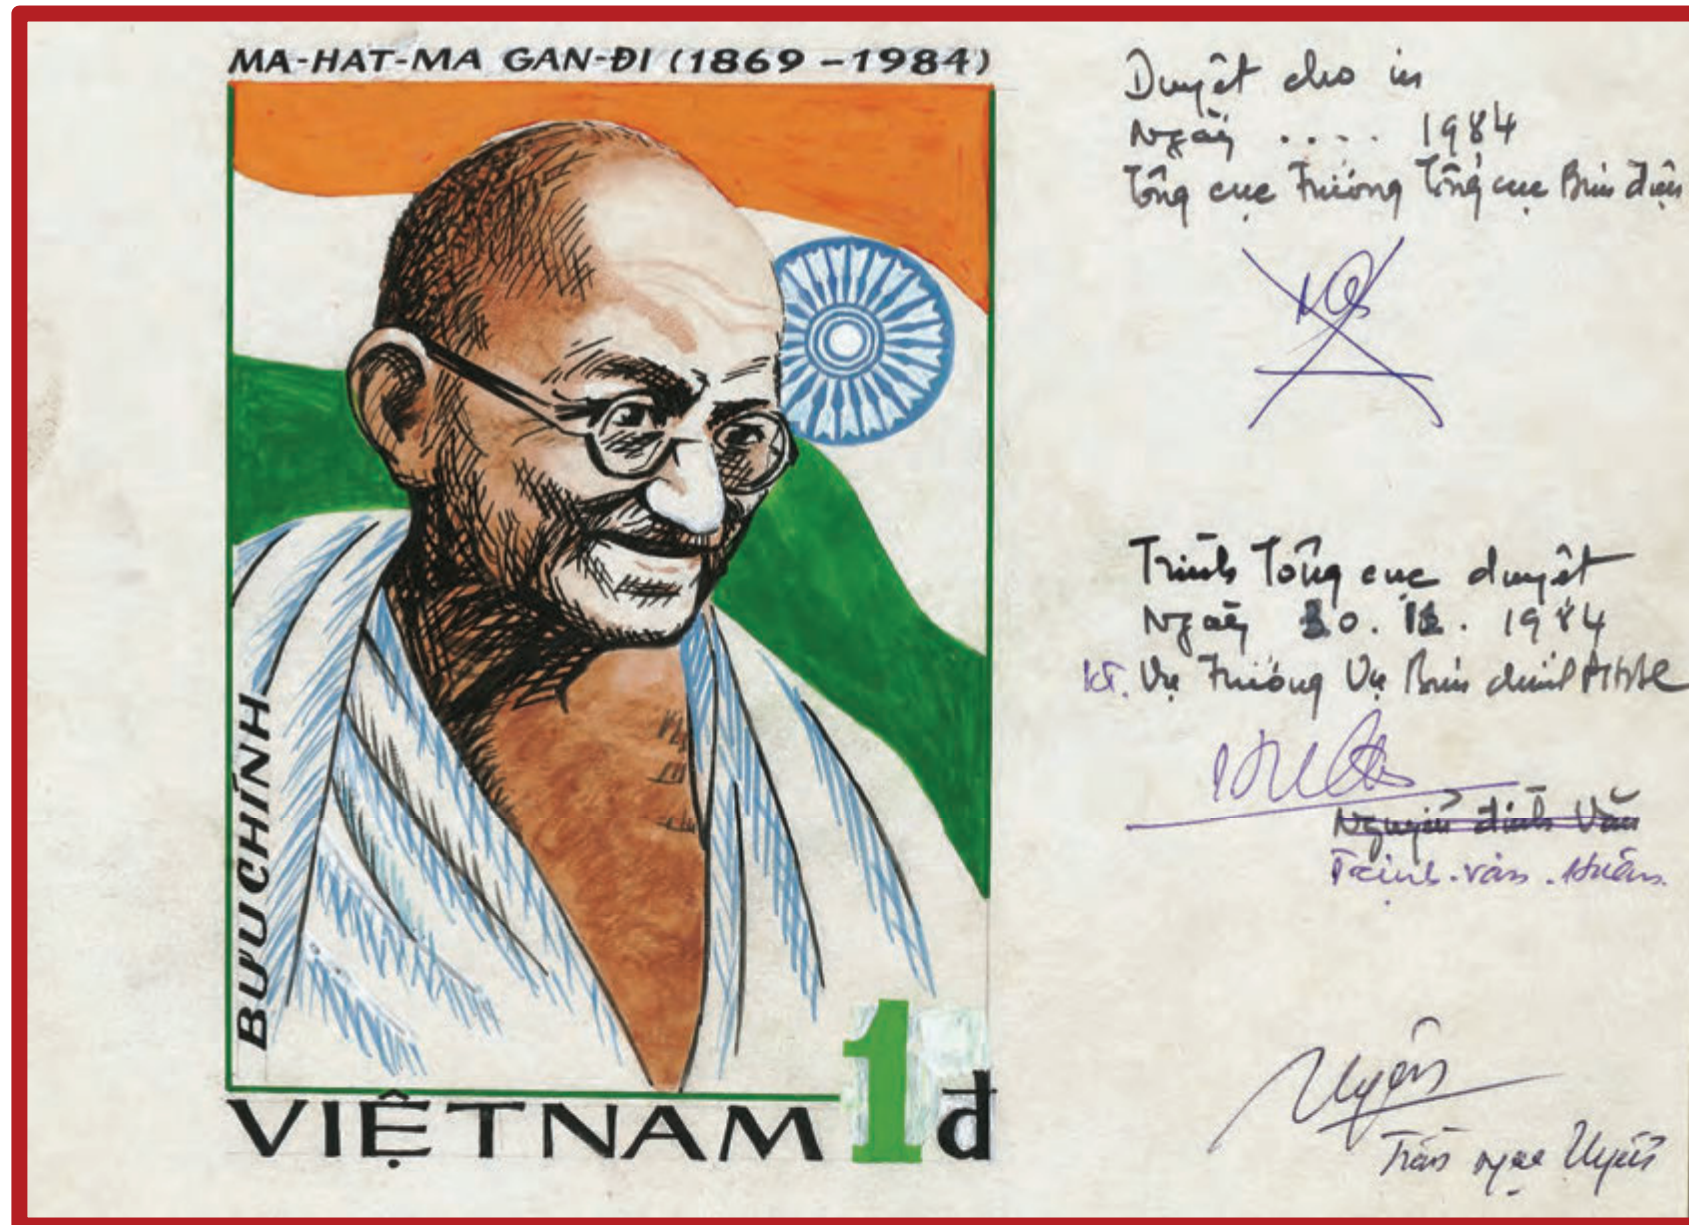 MA-HAT-MA GAN-ĐI (1869 – 1984)
BƯU CHÍNH
VIỆT NAM 1đ
Duyệt cho in
Ngày .... 1984
Tổng cục Trưởng Tổng cục Bưu điện
Trình Tổng cục duyệt
Ngày 1984
KT. Vụ Trưởng Vụ Bưu chính PHBC
Nguyễn đình Văn
Trịnh văn
Uyên
Trần ngọc Uyển